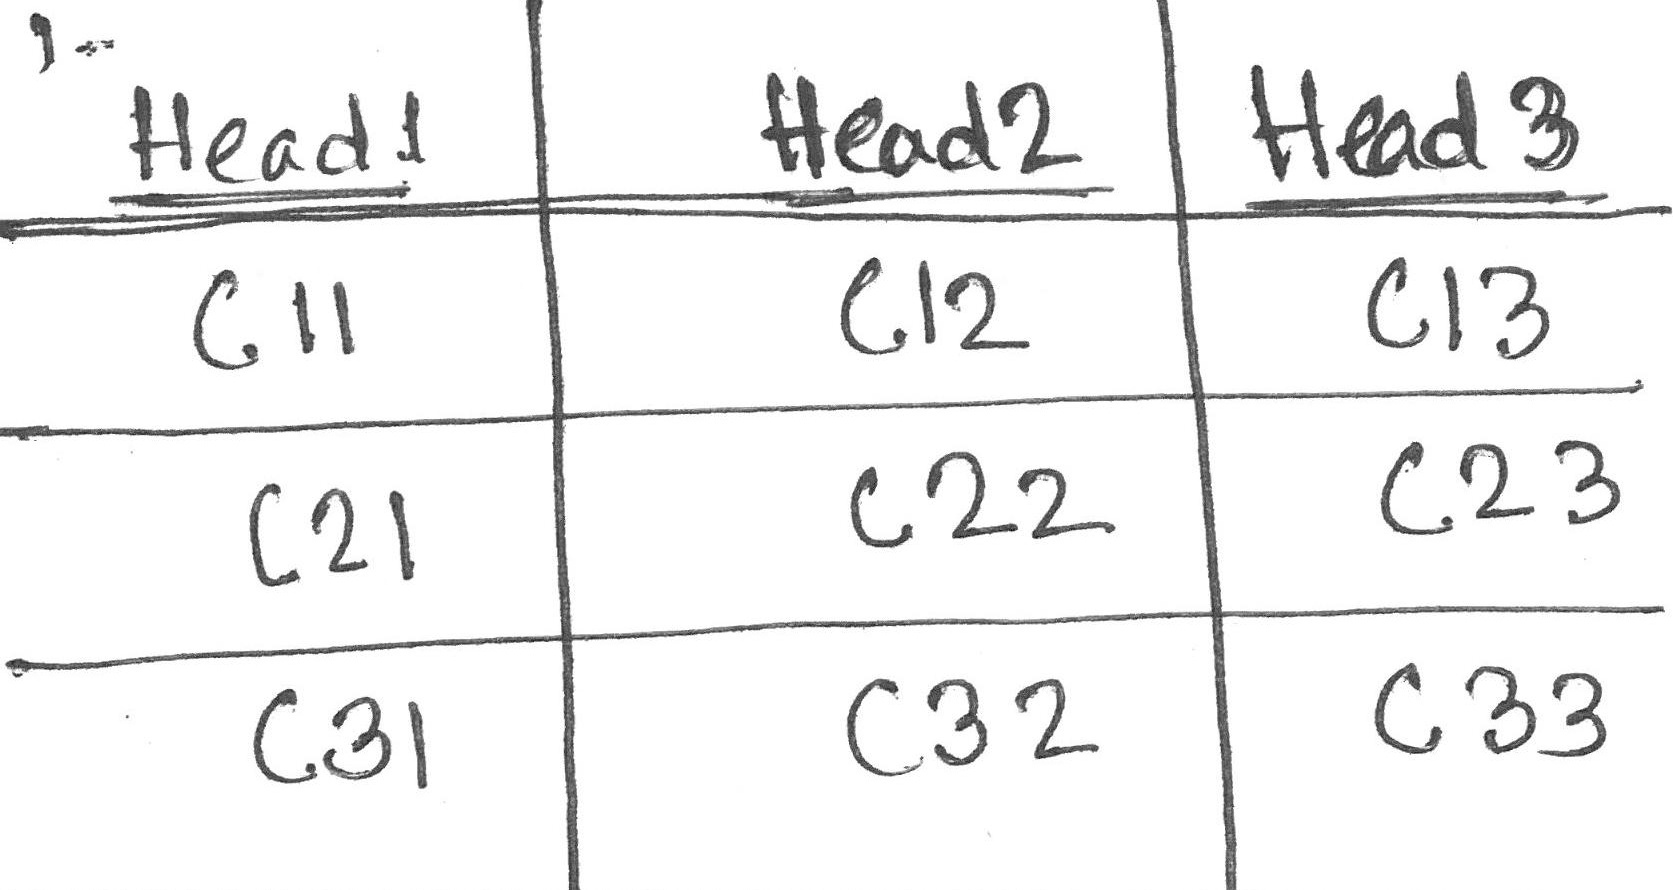 1-
Head1 Head2 Head 3
C11 C12 C13
C21 C22 C23
C31 C32 C33